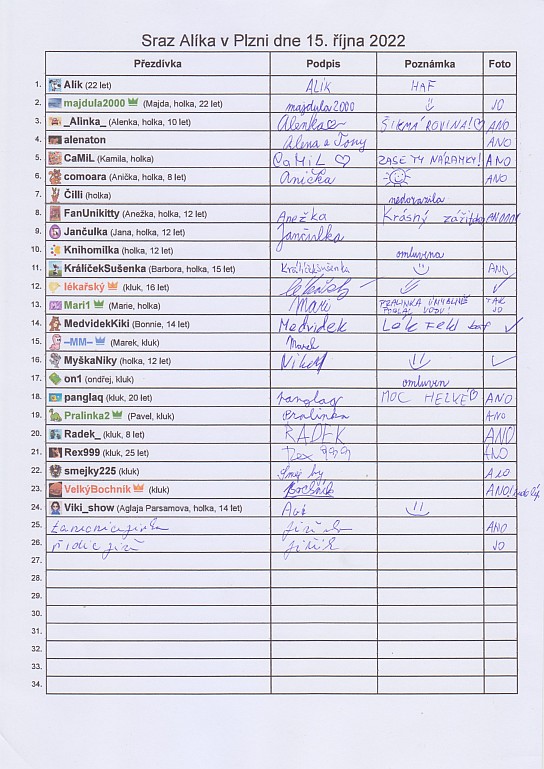 Sraz Alíka v Plzni dne 15. října 2022
Přezdívka Podpis Poznámka Foto
1. Alík (22 let) ALÍK HAF
2. majdula2000 (Majda, holka, 22 let) majdula2000 JO
3. _Alinka_ (Alenka, holka, 10 let) Alenka ŠIKMÁ ROVINA! ANO
4. alenaton Alena a Tony ANO
5. CaMiL (Kamila, holka) CaMiL ZASE TY NÁRAMKY! ANO
6. comoara (Anička, holka, 8 let) Anička ANO
7. Čilli (holka) nedorazila
8. FanUnikitty (Anežka, holka, 12 let) Anežka Krásný zážitek
9. Jančulka (Jana, holka, 12 let) Jančulka
10. Knihomilka (holka, 12 let) omluvena
11. KrálíčekSušenka (Barbora, holka, 15 let) KrálíčekSušenka ANO
12. lékařský (kluk, 16 let) lékařský
13. Mari1 (Marie, holka) Mari PRALINKA TAK JO
14. MedvidekKiki (Bonnie, 14 let) Medvidek
15. –MM– (Marek, kluk) Marek
16. MyškaNiky (holka, 12 let)
17. on1 (ondřej, kluk) omluven
18. panglaq (kluk, 20 let) panglaq MOC HEZKÉ ANO
19. Pralinka2 (Pavel, kluk) Pralinka ANO
20. Radek_ (kluk, 8 let) RADEK ANO
21. Rex999 (kluk, 25 let) Rex 999 ANO
22. smejky225 (kluk) ANO
23. VelkýBochník (kluk) Bochník ANO!
24. Viki_show (Aglaja Parsamova, holka, 14 let)
25. ANO
26. řidič jiří Jiřík JO
27.
28.
29.
30.
31.
32.
33.
34.